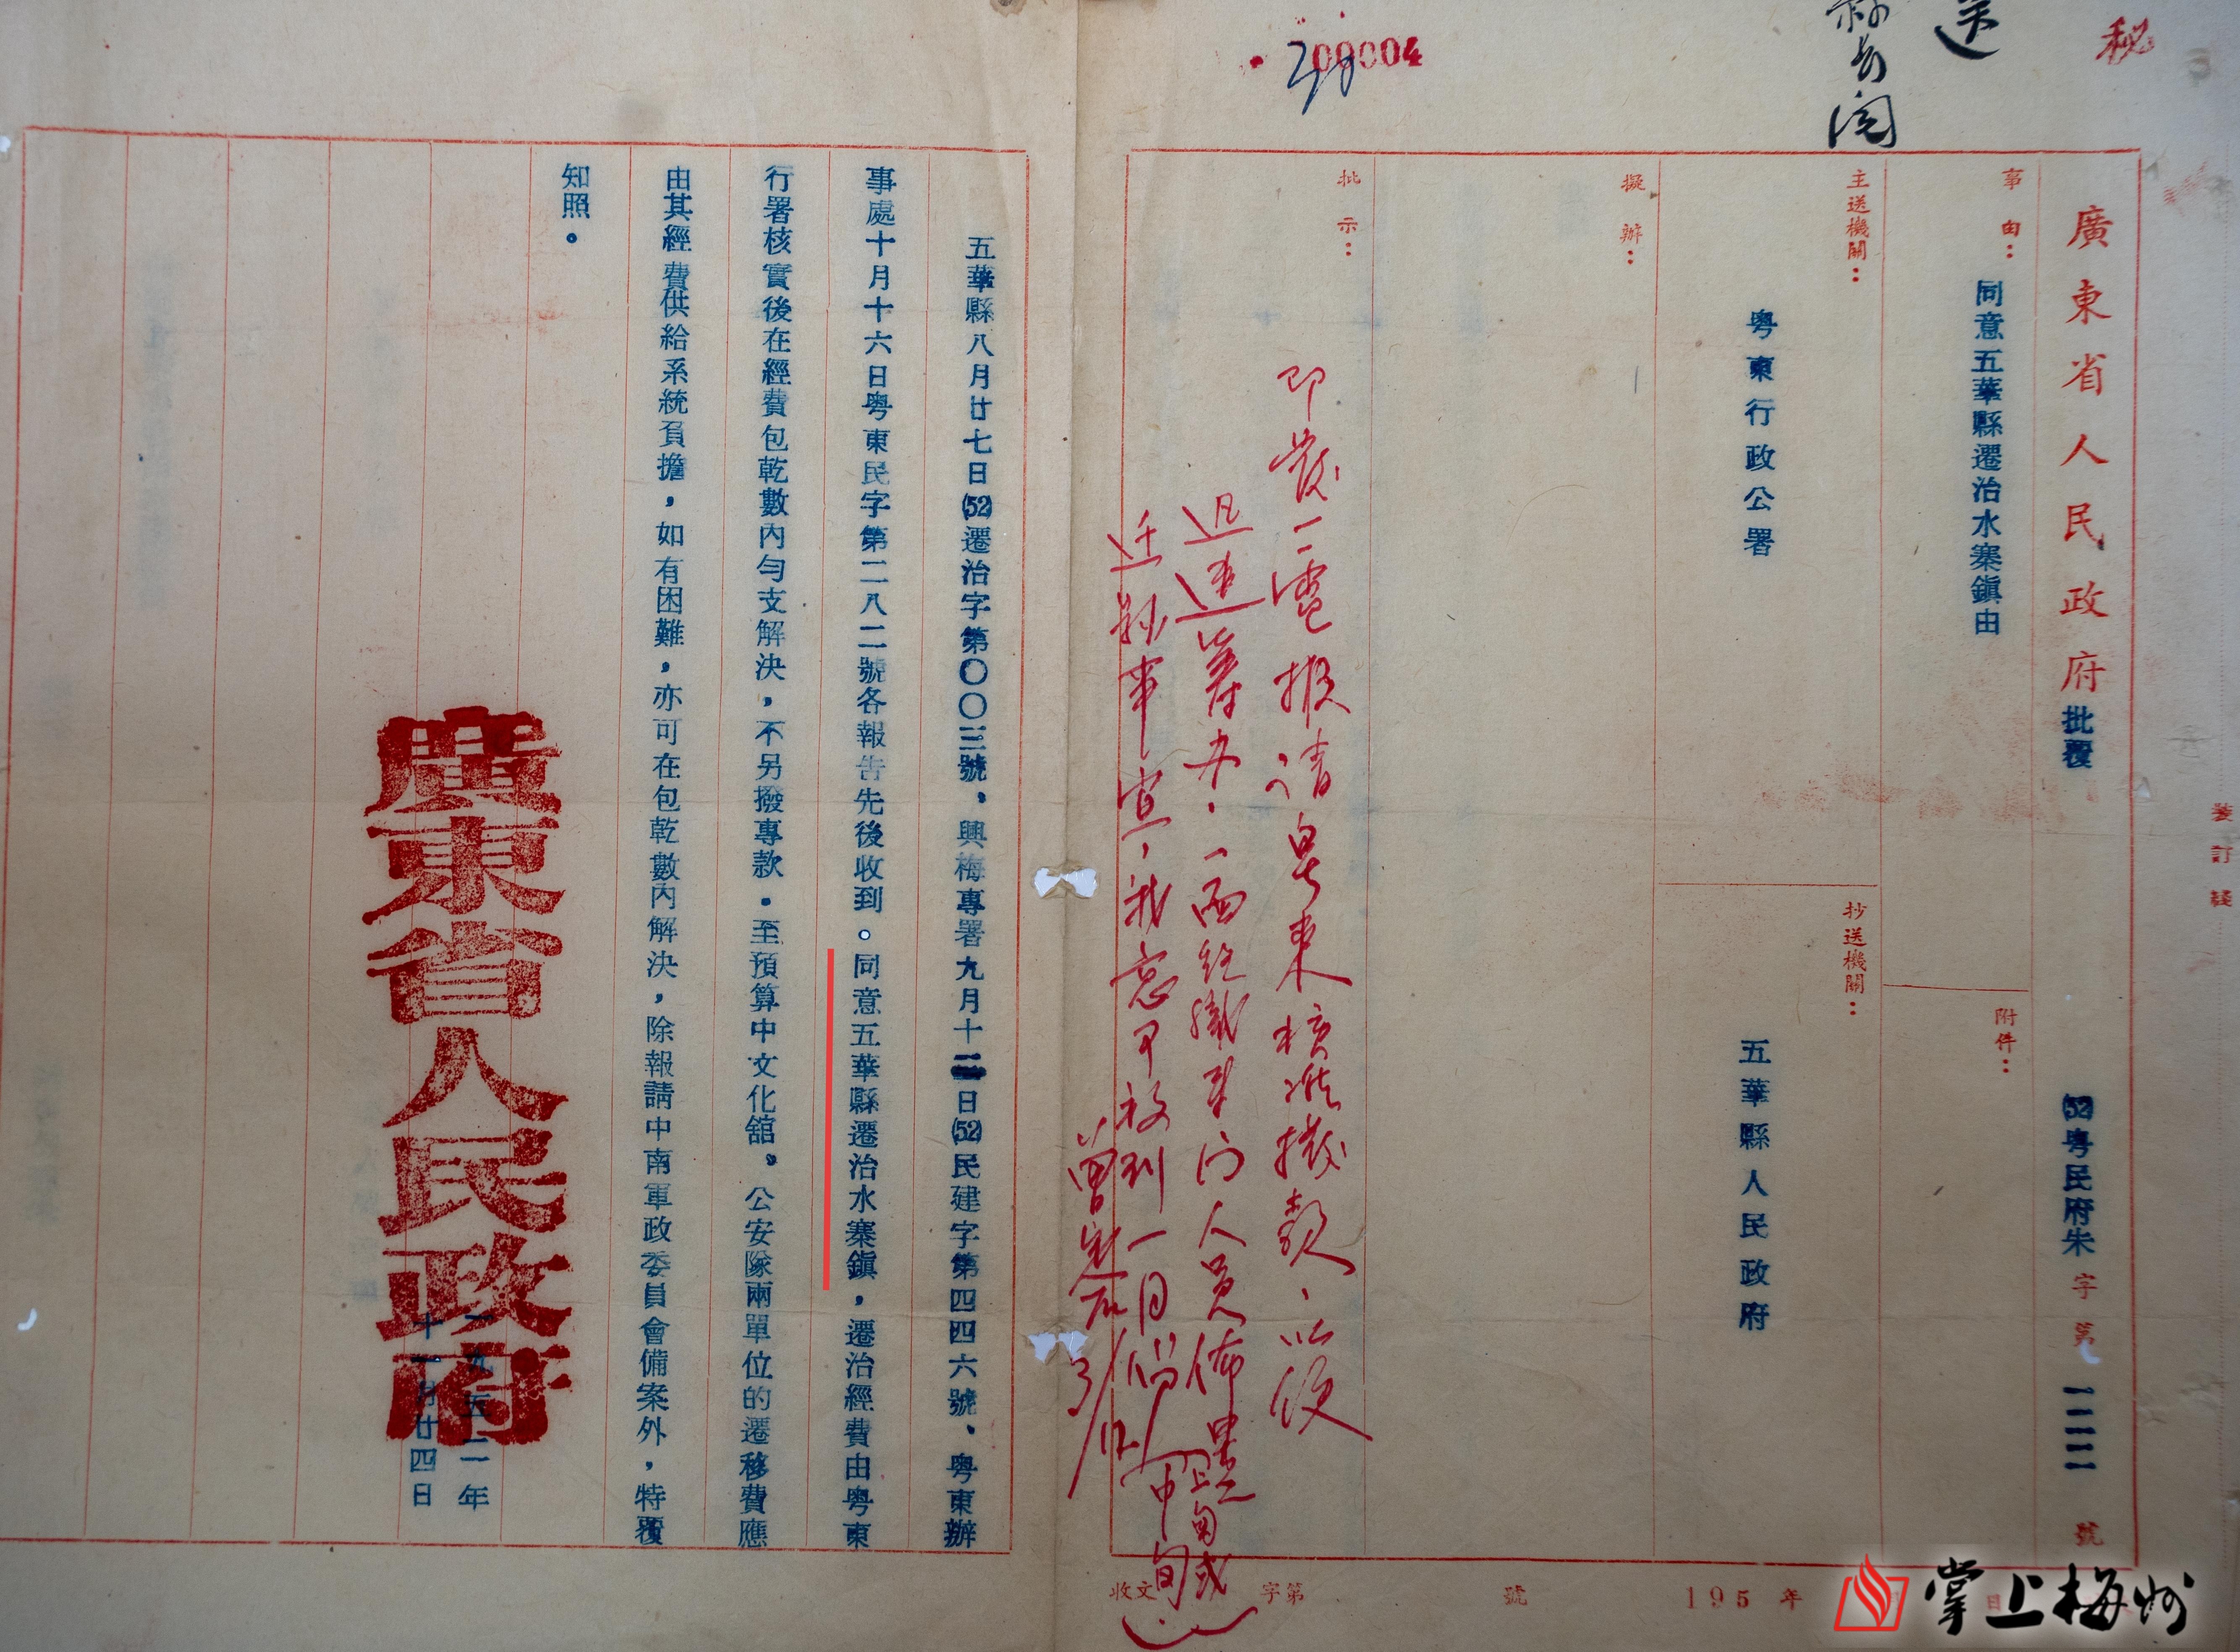 秘
00004
廣東省人民政府批覆
(52)粤民府朱字第一二二二號
事由：
同意五華縣遷治水寨鎮由
附件：
主送機關：
粤東行政公署
抄送機關：
五華縣人民政府
擬辦：
批示：
即發一電報請粤東核准撥款，以便
迅速籌办．一面組織專门人員佈置
迁移事宜，我意可移到一月
上旬或
中旬
五華縣八月廿七日(52)遷治字第〇〇三號，興梅專署九月十二日(52)民建字第四四六號、粤東辦
事處十月十六日粤東民字第二八二號各報告先後收到。同意五華縣遷治水寨鎮，遷治經費由粤東
行署核實後在經費包乾數内勻支解決，不另撥專款。至預算中文化舘。公安隊兩單位的遷移費應
由其經費供給系統負擔，如有困難，亦可在包乾數内解決，除報請中南軍政委員會備案外，特覆
知照。
廣東省人民政府
一九五二年
十一月廿四日
裝訂綫
收文 字第 號 195 年 月 日
掌上梅州